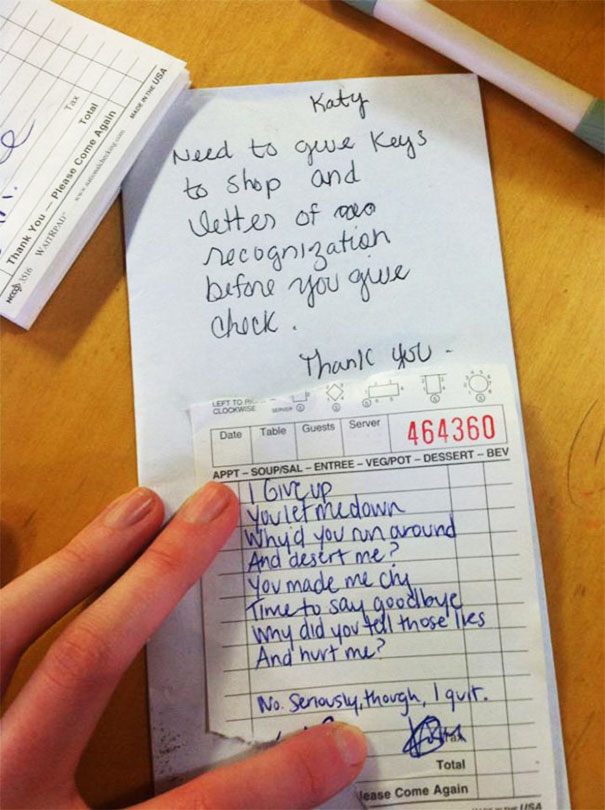 Tax
Total
Thank You — Please Come Again
MADE IN THE USA
3516 WAITRPAD
Katy
Need to give Keys
to shop and
letter of
recognization
before you give
check.
Thank you -
LEFT TO
CLOCKWISE
Date Table Guests Server 464360
APPT – SOUP/SAL – ENTREE – VEG/POT – DESSERT – BEV
I Give up
You let me down
Why'd you run around
And desert me?
You made me cry
Time to say goodbye
Why did you tell those lies
And hurt me?
No. Seriously, though, I quit.
Tax
Total
lease Come Again